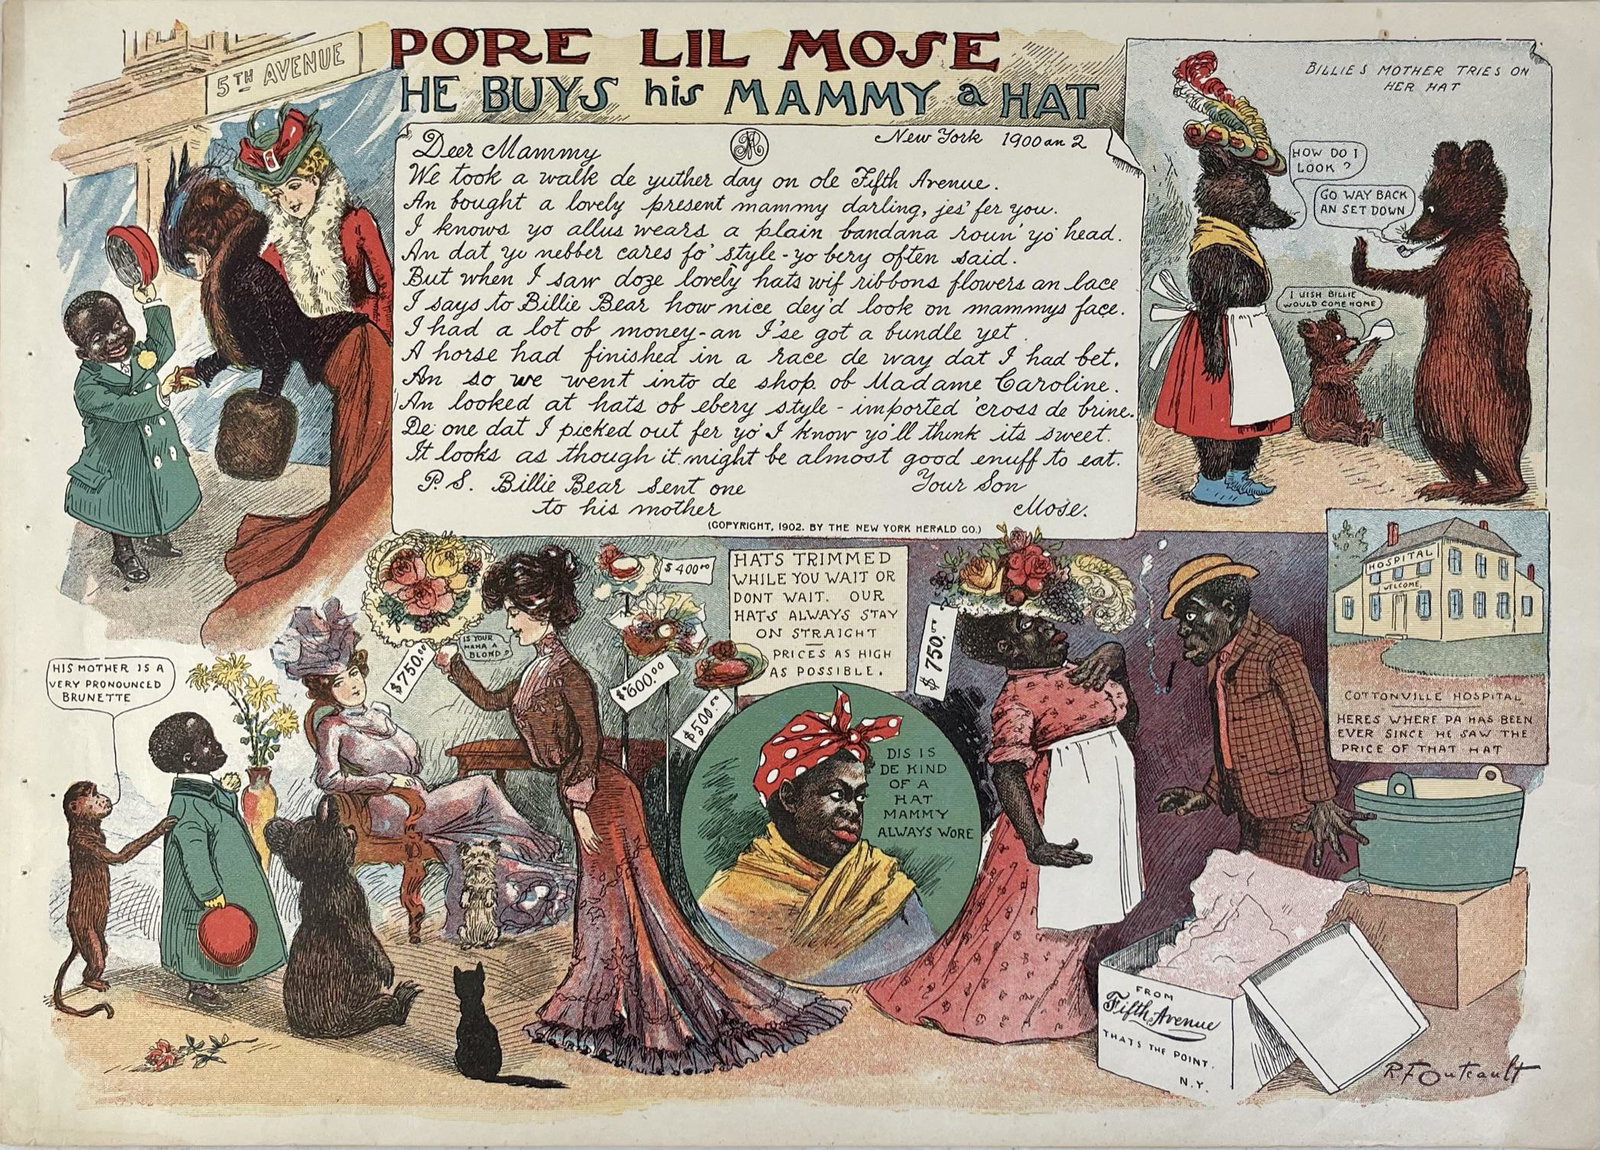 5TH AVENUE
PORE LIL MOSE
HE BUYS his MAMMY a HAT
Deer Mammy
New York 1900 an 2
We took a walk de yuther day on ole Fifth Avenue.
An bought a lovely present mammy darling, jes' fer you.
I knows yo allus wears a plain bandana roun' yo' head.
An dat yo nebber cares fo' style - yo bery often said.
But when I saw doze lovely hats wif ribbons flowers an lace
I says to Billie Bear how nice dey'd look on mammys face.
I had a lot ob money - an I'se got a bundle yet
A horse had finished in a race de way dat I had bet.
An so we went into de shop ob Madame Caroline.
An looked at hats ob ebery style - imported 'cross de brine.
De one dat I picked out fer yo' I know yo'll think its sweet.
It looks as though it might be almost good enuff to eat.
P.S. Billie Bear sent one
to his mother
Your Son
Mose.
(COPYRIGHT, 1902. BY THE NEW YORK HERALD CO.)
BILLIES MOTHER TRIES ON
HER HAT
HOW DO I
LOOK ?
GO WAY BACK
AN SET DOWN
I WISH BILLIE
WOULD COME HOME
HIS MOTHER IS A
VERY PRONOUNCED
BRUNETTE
IS YOUR
MAMA A
BLOND?
$750.00
$400.00
$600.00
$500.00
HATS TRIMMED
WHILE YOU WAIT OR
DONT WAIT. OUR
HATS ALWAYS STAY
ON STRAIGHT
PRICES AS HIGH
AS POSSIBLE.
DIS IS
DE KIND
OF A
HAT
MAMMY
ALWAYS WORE
$750.00
HOSPITAL
WELCOME
COTTONVILLE HOSPITAL
HERES WHERE PA HAS BEEN
EVER SINCE HE SAW THE
PRICE OF THAT HAT
FROM
Fifth Avenue
THATS THE POINT.
N.Y.
R.F. Outcault